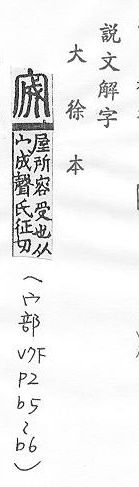 說文解字
大徐本
宬
屋所容受也从
宀成聲氏征切
(宀部 V7F P2 b5~b6)